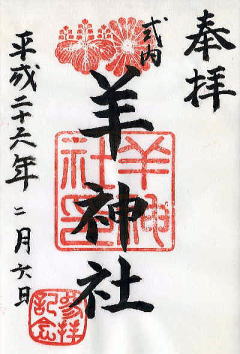 奉拝
式内
羊神社
羊神
社印
平成二十六年二月六日
参拝
記念